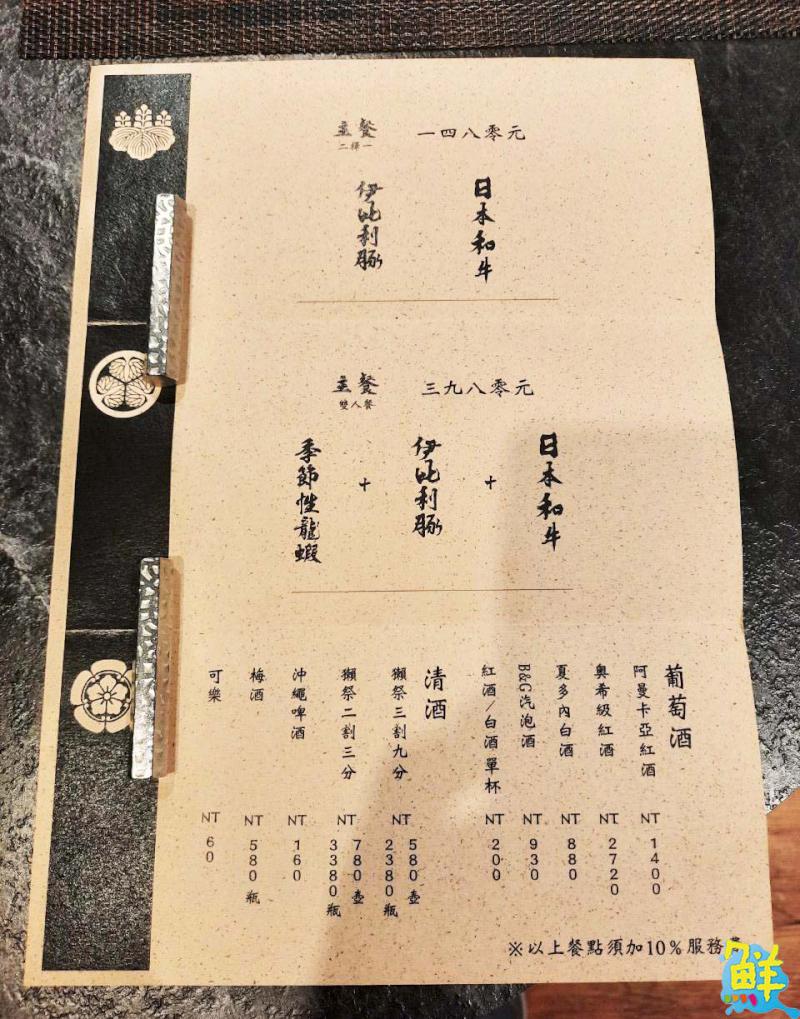 主餐 一四八零元
二擇一
日本和牛
伊比利豚
主餐 三九八零元
雙人餐
日本和牛
+
伊比利豚
+
季節性龍蝦
葡萄酒
阿曼卡亞紅酒 NT 1400
奧希級紅酒 NT 2720
夏多內白酒 NT 880
B&G汽泡酒 NT 930
紅酒/白酒單杯 NT 200
清酒
獺祭三割九分 NT 580 壺
2380 瓶
獺祭二割三分 NT 780 壺
3380 瓶
沖繩啤酒 NT 160
梅酒 NT 580 瓶
可樂 NT 60
※以上餐點須加10%服務費
鮮